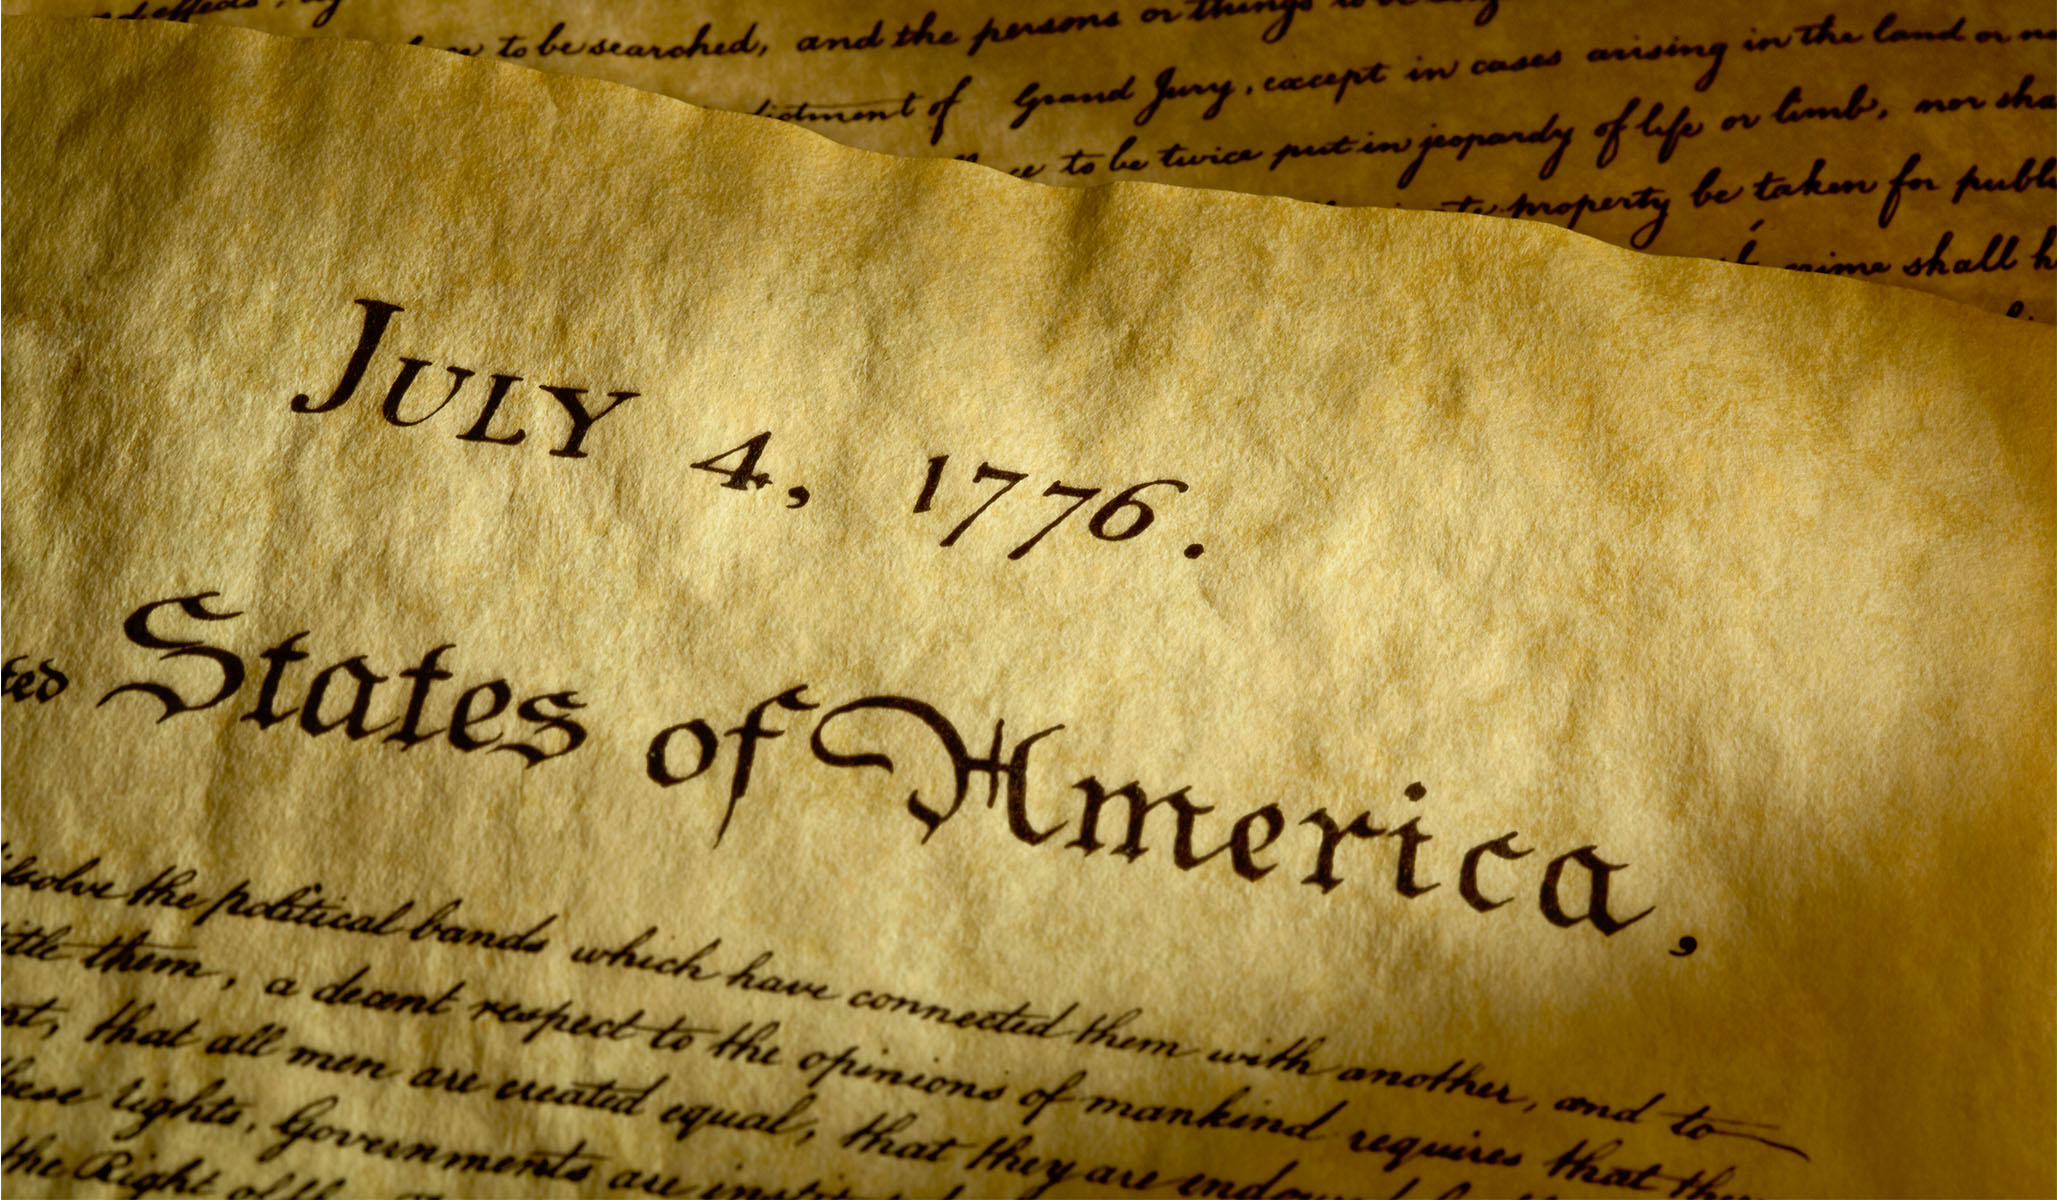 and effects,
to be searched, and the persons or things to be
dictment of Grand Jury, except in cases arising in the land or
to be twice put in jeopardy of life or limb, nor sha
property be taken for publi
crime shall h
JULY 4, 1776.
ted States of America,
issolve the political bands which have connected them with another, and to
itle them, a decent respect to the opinions of mankind requires that the
nt, that all men are created equal, that they are endowed
hese rights, Governments are instit
the Right of the